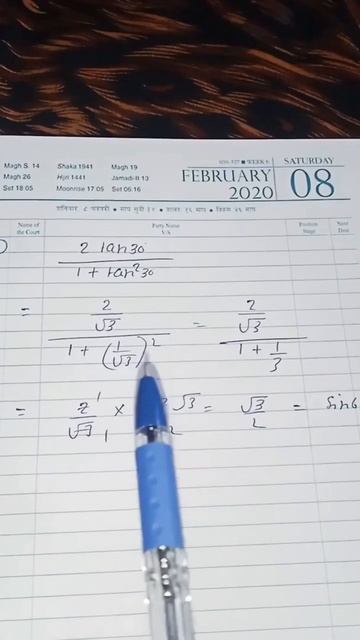 Magh S. 14 Shaka 1941 Magh 19
Magh 26 Hijri 1441 Jamadi-II 13
Set 18.05 Moonrise 17.05 Set 06.16
039-327 ■ WEEK 6 SATURDAY
FEBRUARY 08
2020
Name of the Court Party Name V/s Position Stage Next Date
2 tan30
1 + tan²30
= 2/√3 / 1 + (1/√3)² = 2/√3 / 1 + 1/3
= 2/√3 × √3 / 2 = √3/2 = Sin6